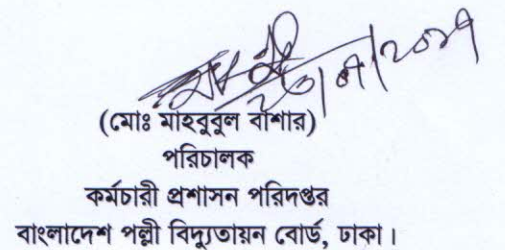 (মোঃ মাহবুবুল বাশার)
পরিচালক
কর্মচারী প্রশাসন পরিদপ্তর
বাংলাদেশ পল্লী বিদ্যুতায়ন বোর্ড, ঢাকা।